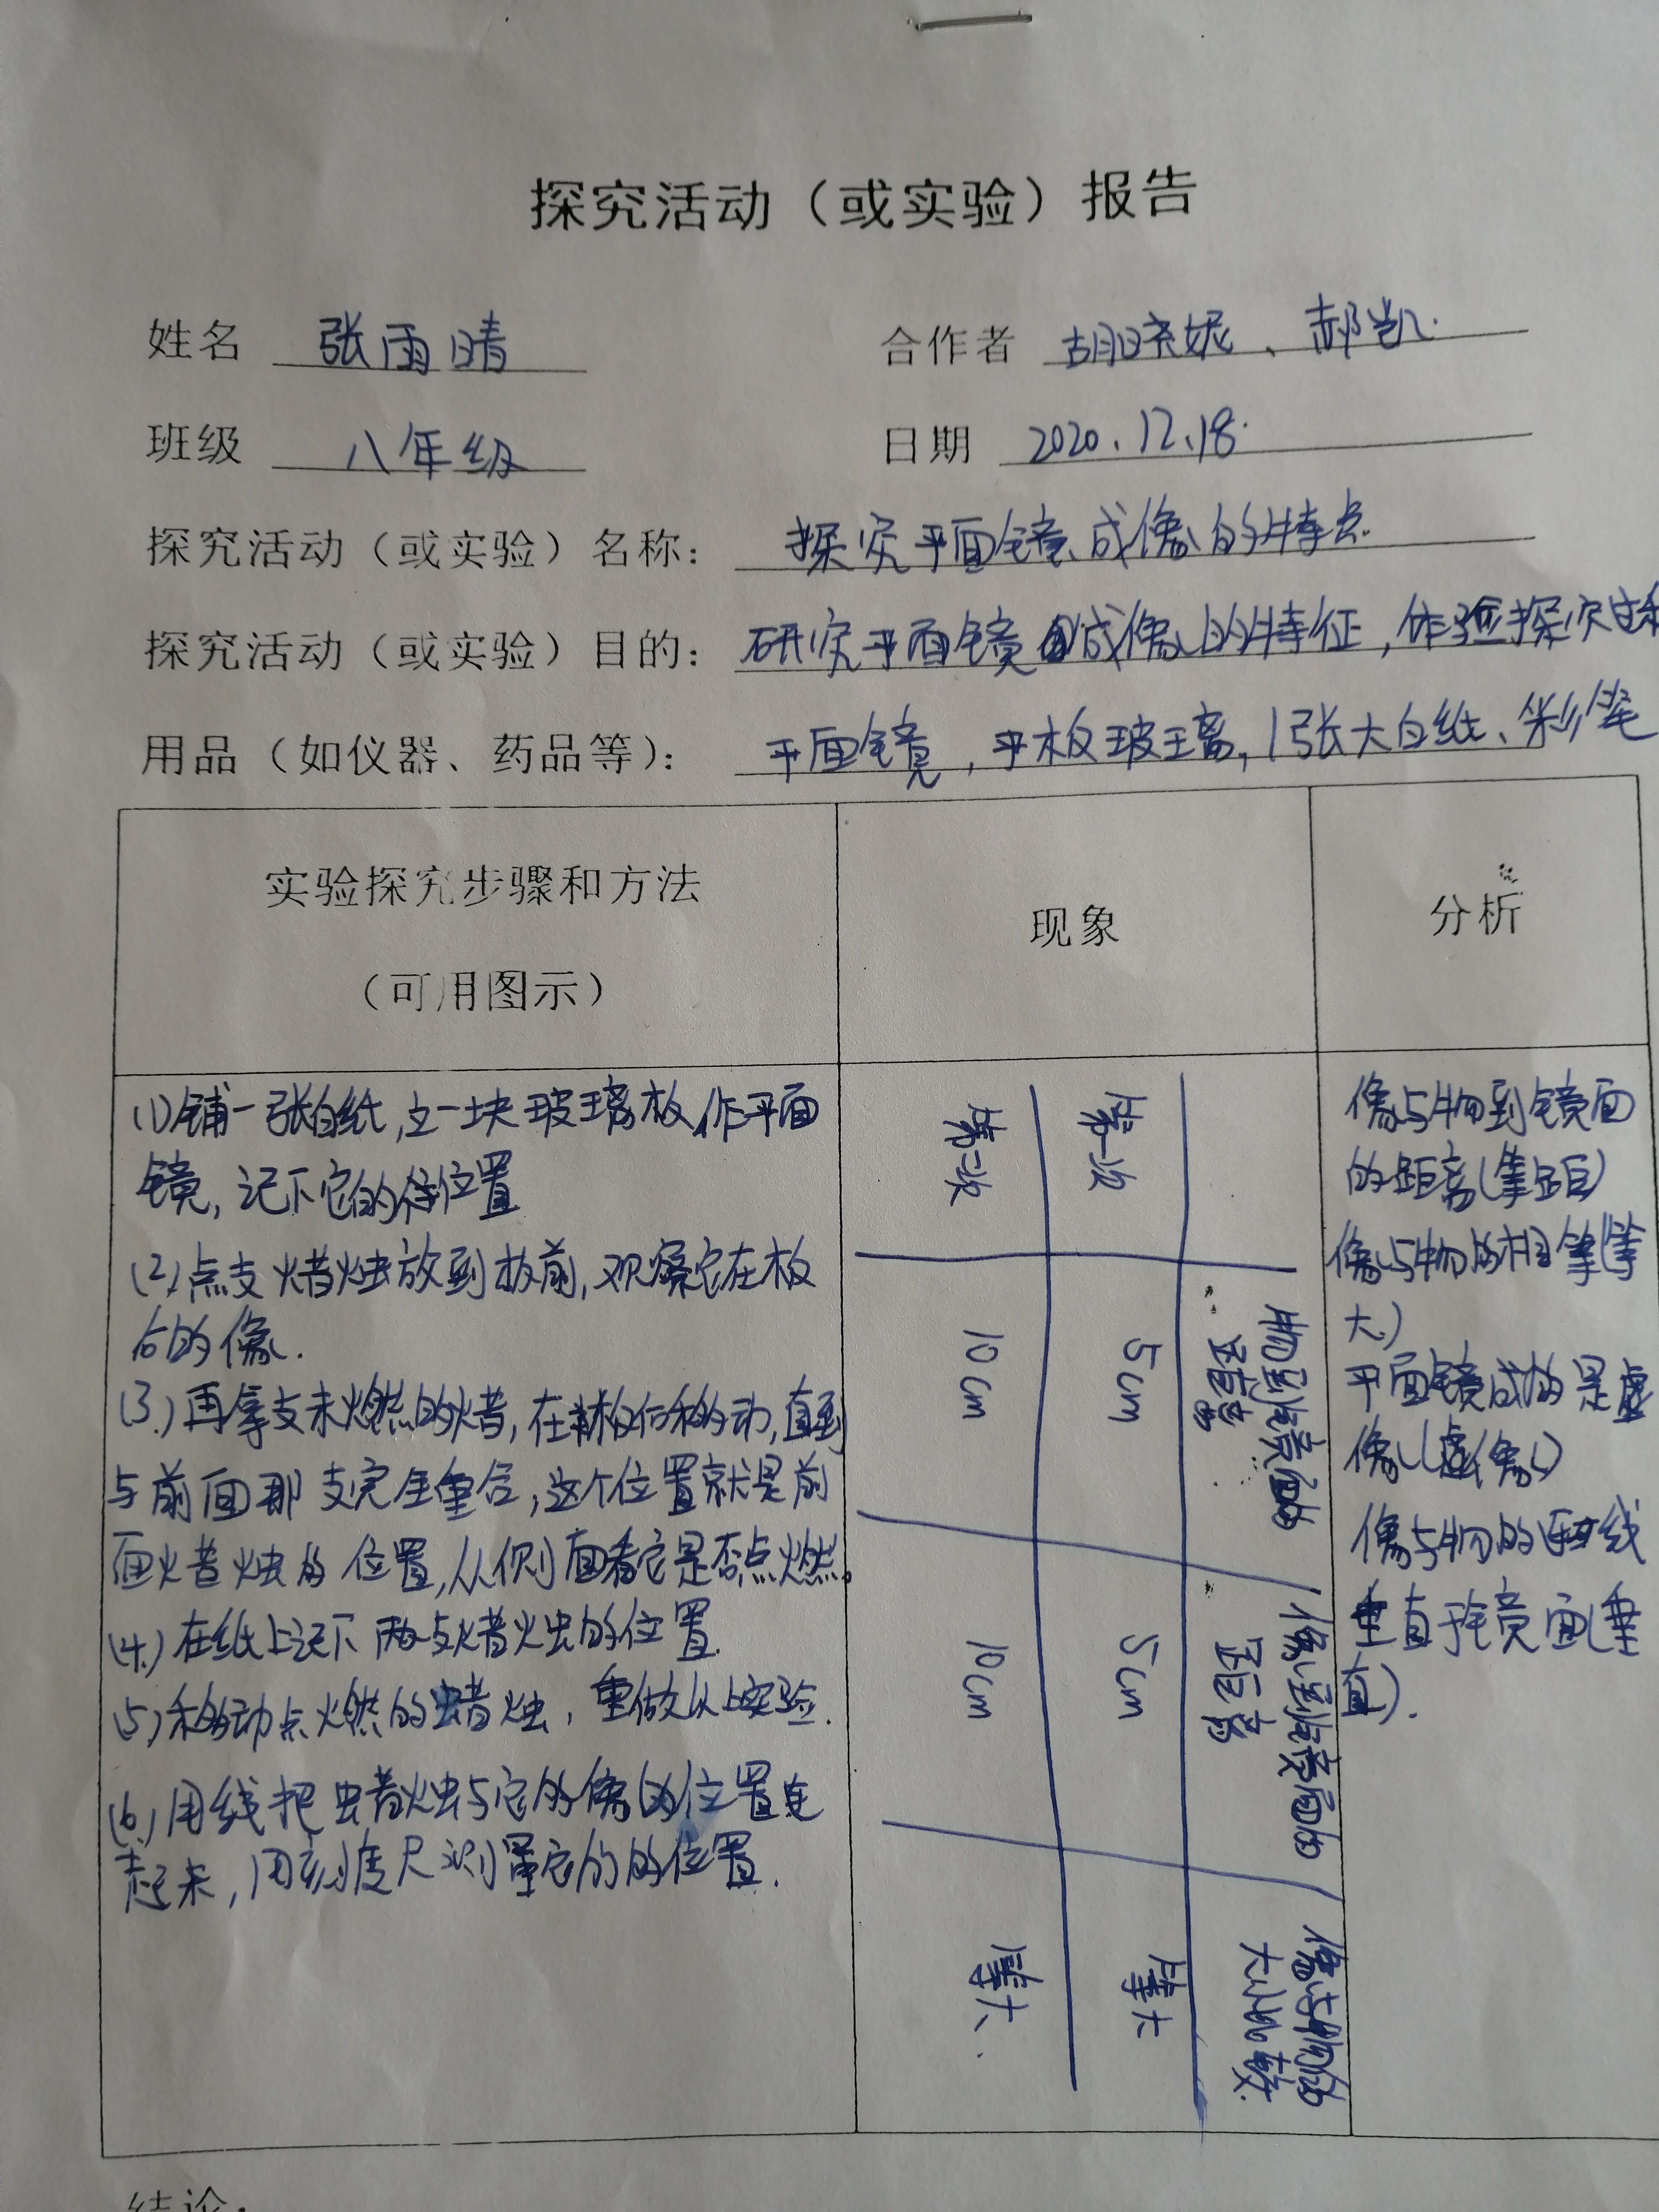 探究活动（或实验）报告
姓名 张雨晴 合作者 胡晓妮、郝凯
班级 八年级 日期 2020.12.18.
探究活动（或实验）名称： 探究平面镜成像的特点
探究活动（或实验）目的： 研究平面镜成像的特征，体验探究过程
用品（如仪器、药品等）： 平面镜，平板玻璃，1张大白纸、彩笔
实验探究步骤和方法
（可用图示）
现象
分析
(1)铺一张白纸，立一块玻璃板作平面
镜，记下它的位置
(2)点支蜡烛放到板前，观察它在板
后的像.
(3.)再拿支未燃的蜡，在板后移动，直到
与前面那支完全重合，这个位置就是前
面蜡烛的位置，从侧面看它是否点燃。
(4.)在纸上记下两支蜡烛的位置.
(5)移动点燃的蜡烛，重做以上实验.
(6.)用线把蜡烛与它的像的位置连
起来，用刻度尺测量它们的位置.
物到镜面的
距离
像到镜面的
距离
像与物的
大小比较
第一次 5cm 5cm 等大
第二次 10cm 10cm 等大.
像与物到镜面
的距离(等距)
像与物的相等(等
大)
平面镜成的是虚
像(虚像)
像与物的连线
垂直于镜面(垂
直).
结论：